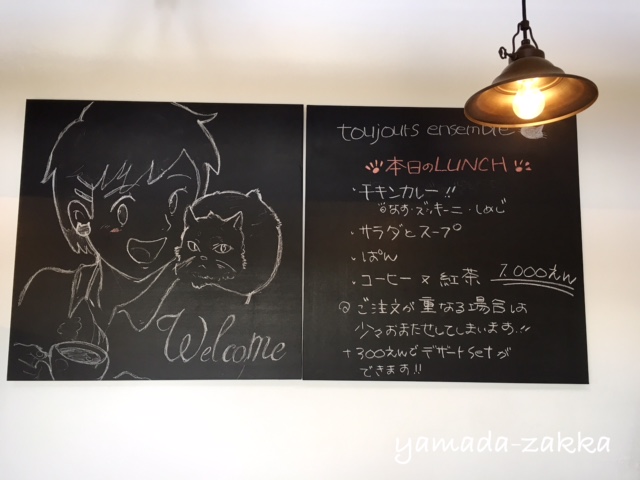 Welcome
toujours ensemble
本日のLUNCH
・チキンカレー!!
なす・ズッキーニ・しめじ
・サラダとスープ
・ぱん
・コーヒー or 紅茶 1.000えん
ご注文が重なる場合は
少々おまたせしてしまいます!!
+300えんでデザートsetが
できます!!
yamada-zakka